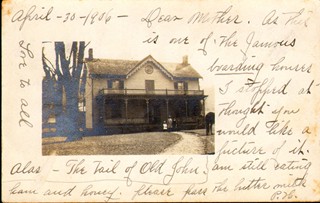 April - 30 - 1906 - Dear Mother. As this
is one of the famous
boarding houses
I stopped at
thought you
would like a
picture of it.
Love to all
Alas - The tail of Old John. am still eating
ham and honey. Please pass the butter milk